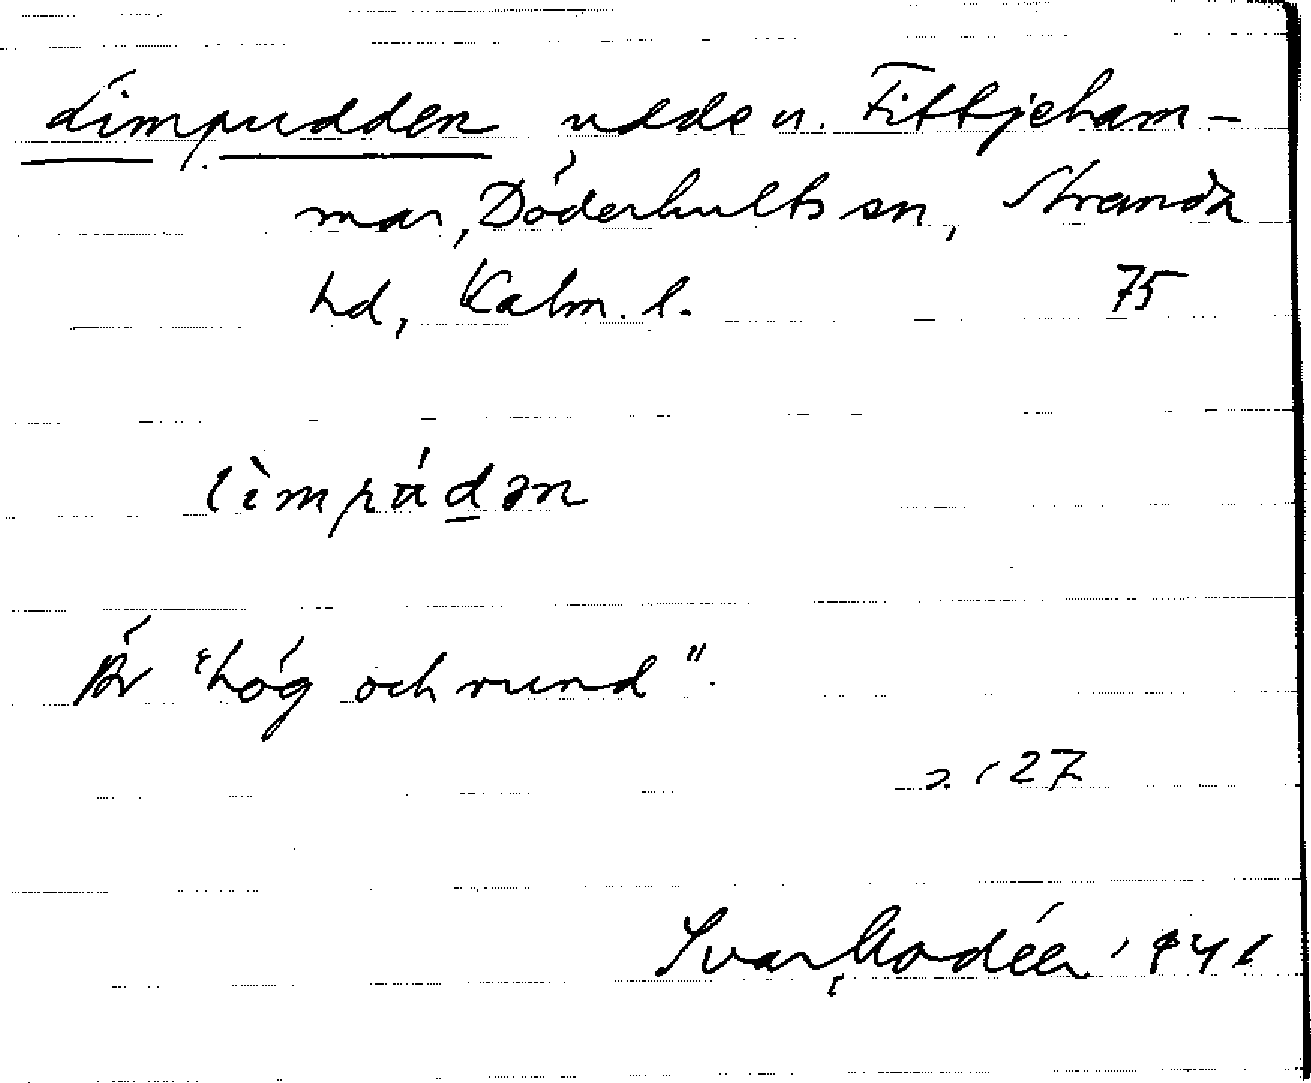 Limpudden udde n. Fittjeham-
mar, Döderhults sn, Stranda
hd, Kalm. l. 75
lìmpúdən
Är "hög och rund".
127
Ivar Modéer 1941